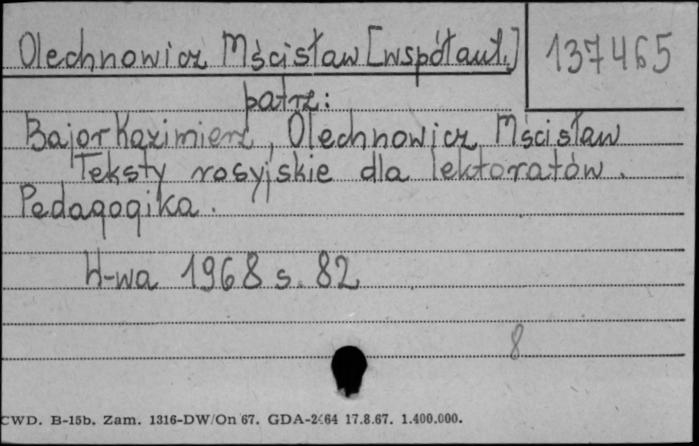 Olechnowicz Mścisław [współaut.]
137465
patrz:
Bajor Kazimierz, Olechnowicz Mścisław
Teksty rosyjskie dla lektoratów.
Pedagogika.
W-wa 1968 s. 82
8
CWD. B-15b. Zam. 1316-DW/On 67. GDA-2464 17.8.67. 1.400.000.